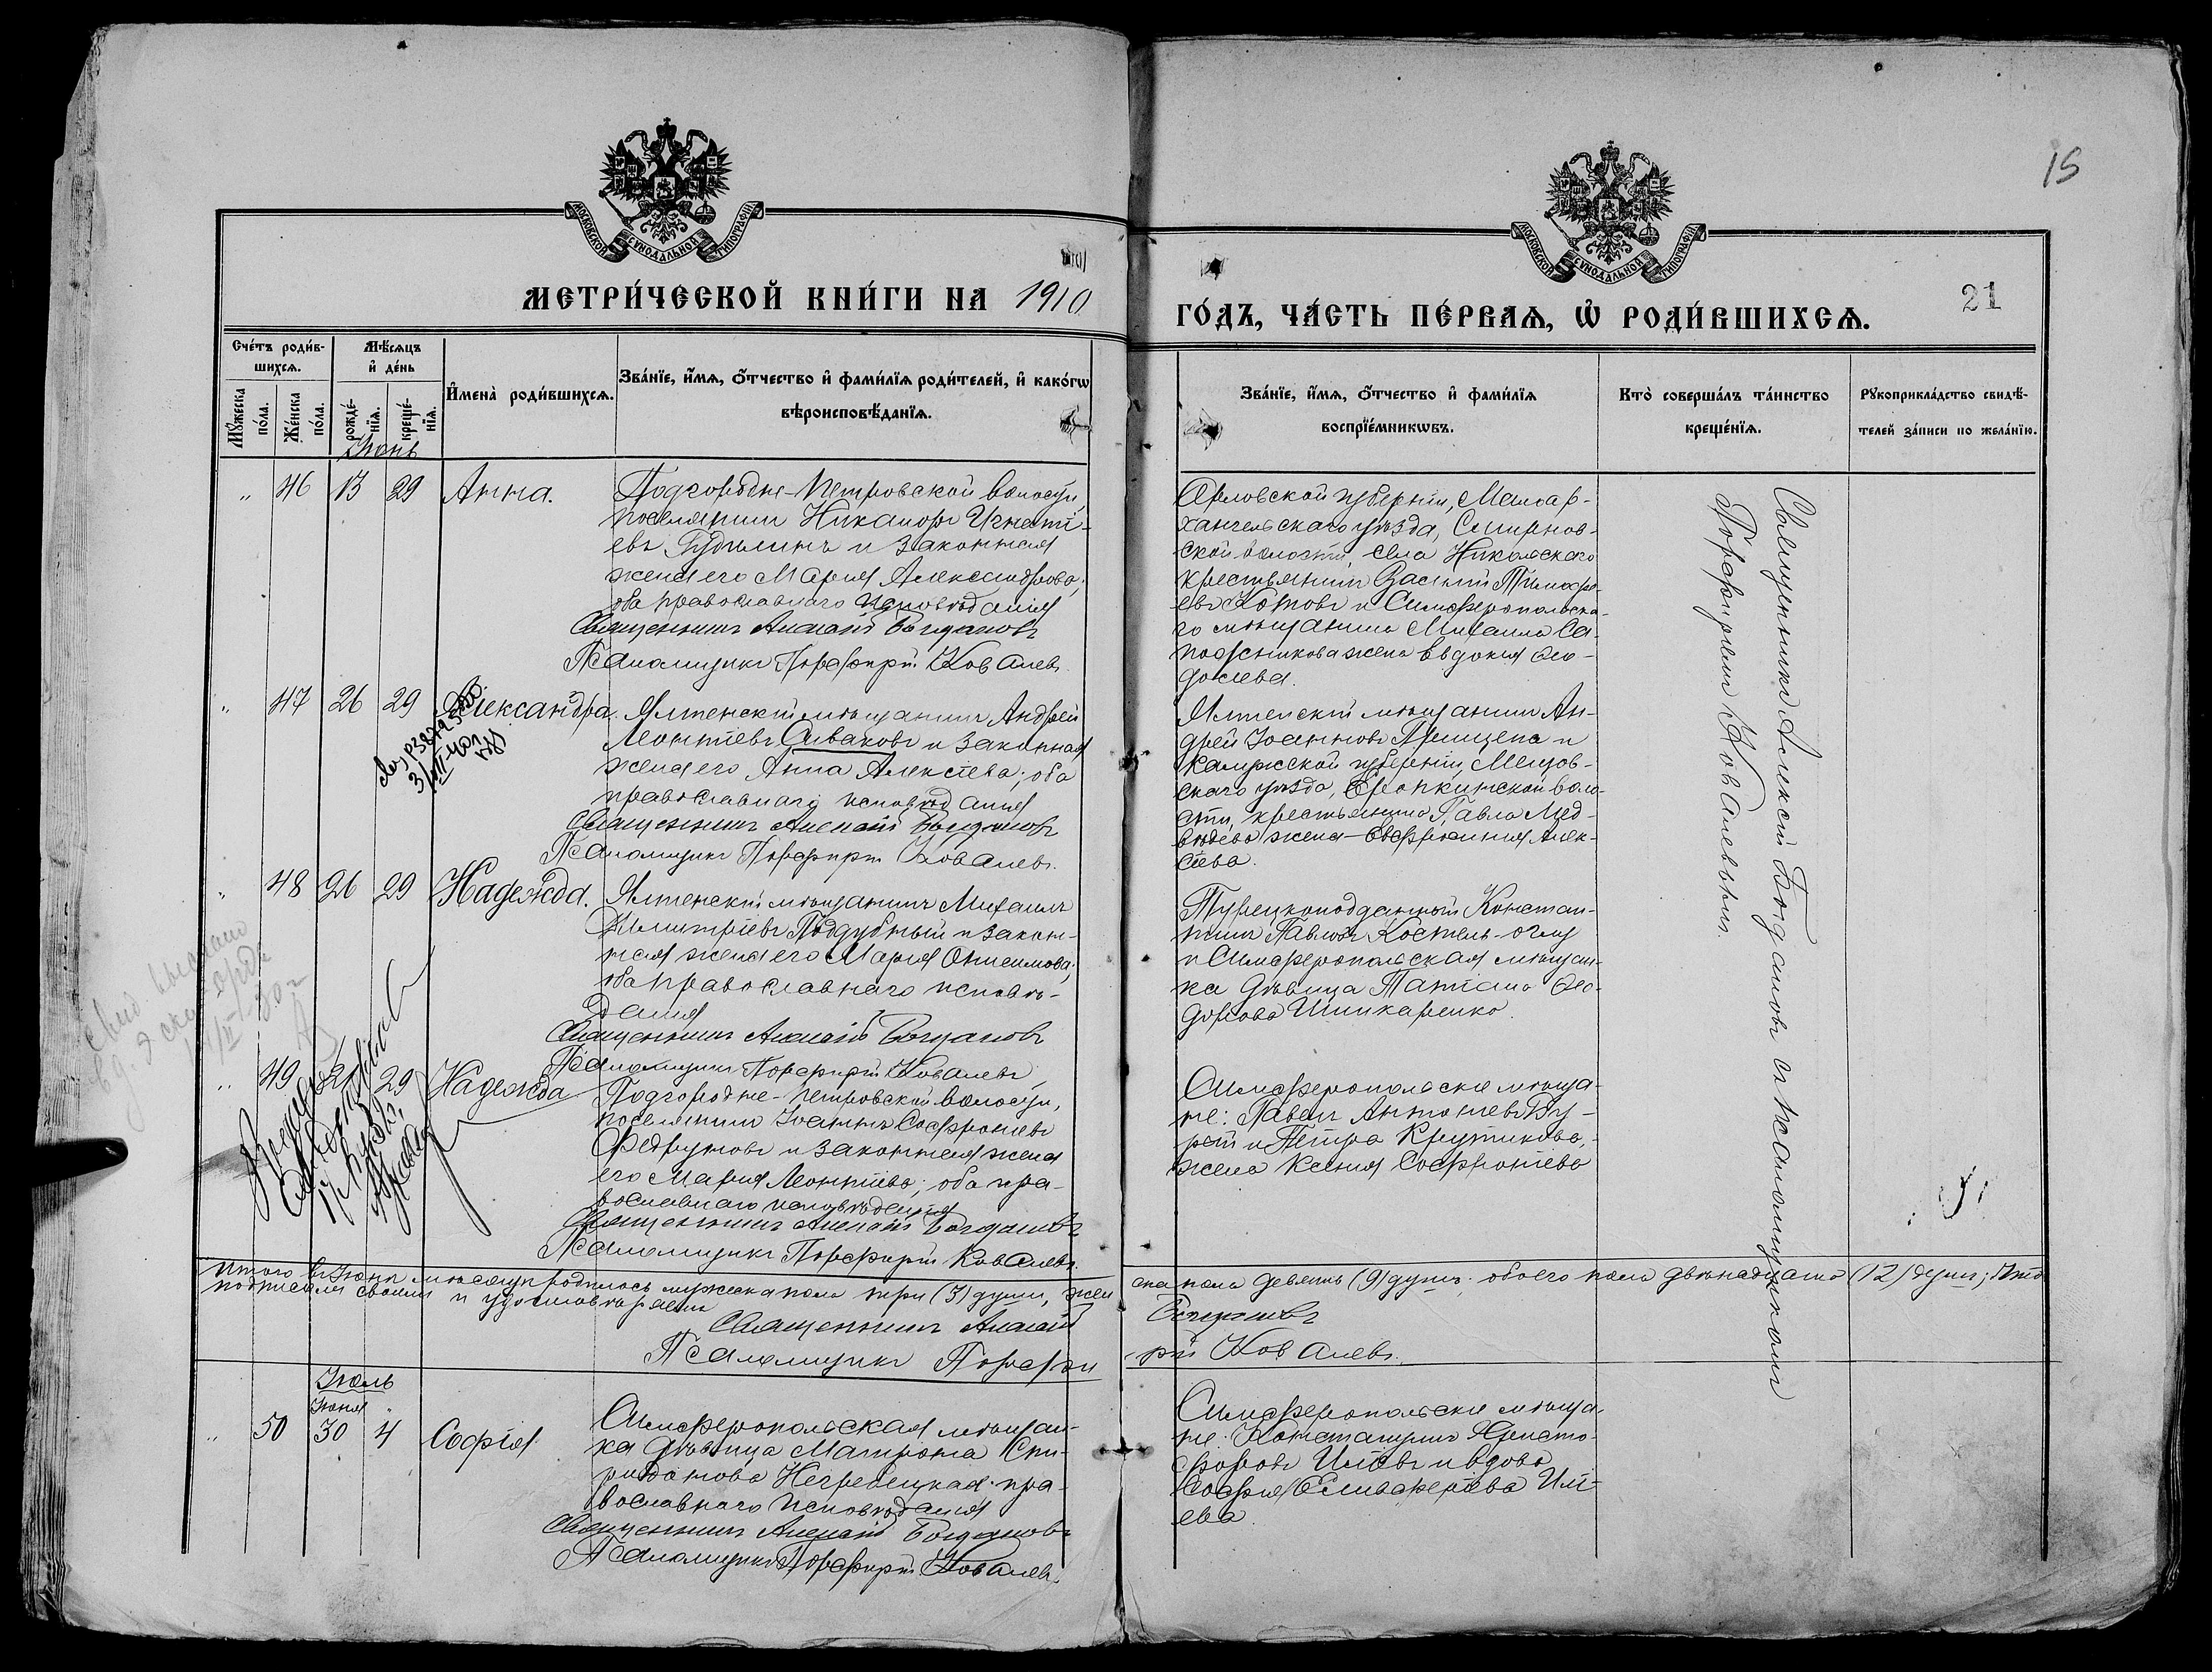 15
МОСКОВСКОЙ СѴНОДАЛЬНОЙ ТИПОГРАФІИ
МОСКОВСКОЙ СѴНОДАЛЬНОЙ ТИПОГРАФІИ
МЕТРИ́ЧЕСКОЙ КНИ́ГИ НА 1910
ГО́ДЪ, ЧА́СТЬ ПЕ́РВАЯ, Ѽ РОДИ́ВШИХСѦ.
21
Сче́тъ роди́в-
шихсѧ.
Мꙋ́жеска по́ла.
Же́нска по́ла.
Мѣ́сѧцъ
и҆ де́нь
рожде́-
нїѧ.
креще́-
нїѧ.
И҆мена̀ роди́вшихсѧ.
Зва́нїе, и҆́мѧ, ѻ҆́тчество и҆ фами́лїѧ роди́телей, и҆ како́гѡ
вѣроисповѣ́данїѧ.
Зва́нїе, и҆́мѧ, ѻ҆́тчество и҆ фами́лїѧ
воспрїе́мникѡвъ.
Кто̀ соверша́лъ та́инство
креще́нїѧ.
Рꙋкоприкла́дство свидѣ́-
телей за́писи по жела́нїю.
Іюнь
„ 46 13 29 Анна.
Подгородне-Петровской волости,
поселянинъ Никаноръ Игнаті-
евъ и законная
жена его Марія Александрова;
оба православнаго исповѣданія
Священникъ Алексій Богдановъ
Псаломщикъ Порфирій Ковалевъ.
Орловской губерніи, Малоар-
хангельскаго уѣзда, Смирнов-
ской волости, села Никольскаго
крестьянинъ Василій Тимофе-
евъ Котовъ и Симферопольска-
го мѣщанина Михаила Са-
пожникова жена Евдокія Ѳео-
досіева.
„ 47 26 29 Александра.
Ялтенскій мѣщанинъ Андрей
Леонтіевъ Сиваковъ и законная
жена его Анна Алексіева; оба
православнаго исповѣданія
Священникъ Алексій Богдановъ
Псаломщикъ Порфирій Ковалевъ.
Ялтенскій мѣщанинъ Ан-
дрей Іоанновъ Прищепа и
Калужской губерніи, Мещов-
скаго уѣзда, волос-
ти, крестьянина Павла Мед-
вѣдева жена Евфросинія Алек-
сіева.
„ 48 26 29 Надежда.
Ялтенскій мѣщанинъ Михаилъ
Димитріевъ Поддубный и закон-
ная жена его Марія Онисимова;
оба православнаго исповѣ-
данія
Священникъ Алексій Богдановъ
Псаломщикъ Порфирій Ковалевъ
Турецкоподданный Констан-
тинъ Павловъ Костель-оглу
и Симферопольская мѣщан-
ка дѣвица Татіана Ѳео-
дорова Шинкаренко.
„ 49 29 Надежда
Подгородне-Петровской волости,
поселянинъ Іоаннъ Софроніевъ
и законная жена
его Марія Леонтіева; оба пра-
вославнаго исповѣданія
Священникъ Алексій Богдановъ
Псаломщикъ Порфирій Ковалевъ.
Симферопольскіе мѣща-
не: Павелъ Антоніевъ
и Петра Крутикова,
жена Ксенія Софроніева
Священникъ Алексій Богдановъ съ псаломщикомъ
Порфиріемъ Ковалевымъ.
Итого въ Іюнѣ мѣсяцѣ родилось мужеска пола три (3) души, жен
ска пола девять (9) душъ; обоего пола двѣнадцать (12) душъ; что
подписями своими и удостовѣряемъ
Священникъ Алексій
Богдановъ
Псаломщикъ Порфи
рій Ковалевъ.
Іюль
Іюня „
„ 50 30 4 Софія
Симферопольская мѣщан-
ка дѣвица Матрона Спи-
ридонова Негребецкая; пра-
вославнаго исповѣданія
Священникъ Алексій Богдановъ
Псаломщикъ Порфирій Ковалевъ.
Симферопольскіе мѣща-
не: Константинъ Христо-
форовъ Иліевъ и вдова
Софія Елевферіева Илі-
ева.